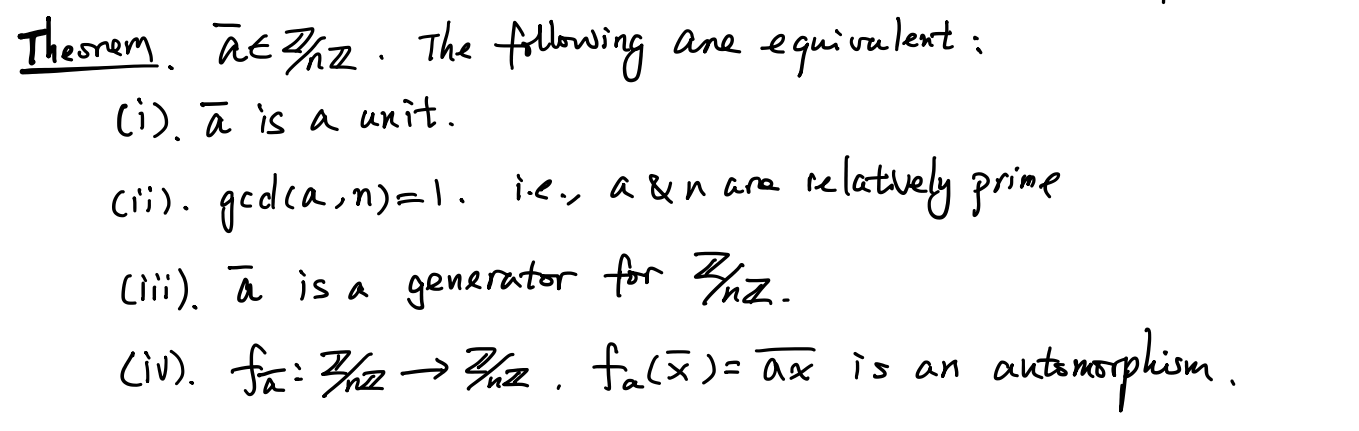 Theorem. a̅ ∈ ℤ/nℤ. The following are equivalent:
(i). a̅ is a unit.
(ii). gcd(a,n)=1. i.e., a & n are relatively prime
(iii). a̅ is a generator for ℤ/nℤ.
(iv). f_a̅: ℤ/nℤ → ℤ/nℤ. f_a(x̅) = a̅x̅ is an automorphism.